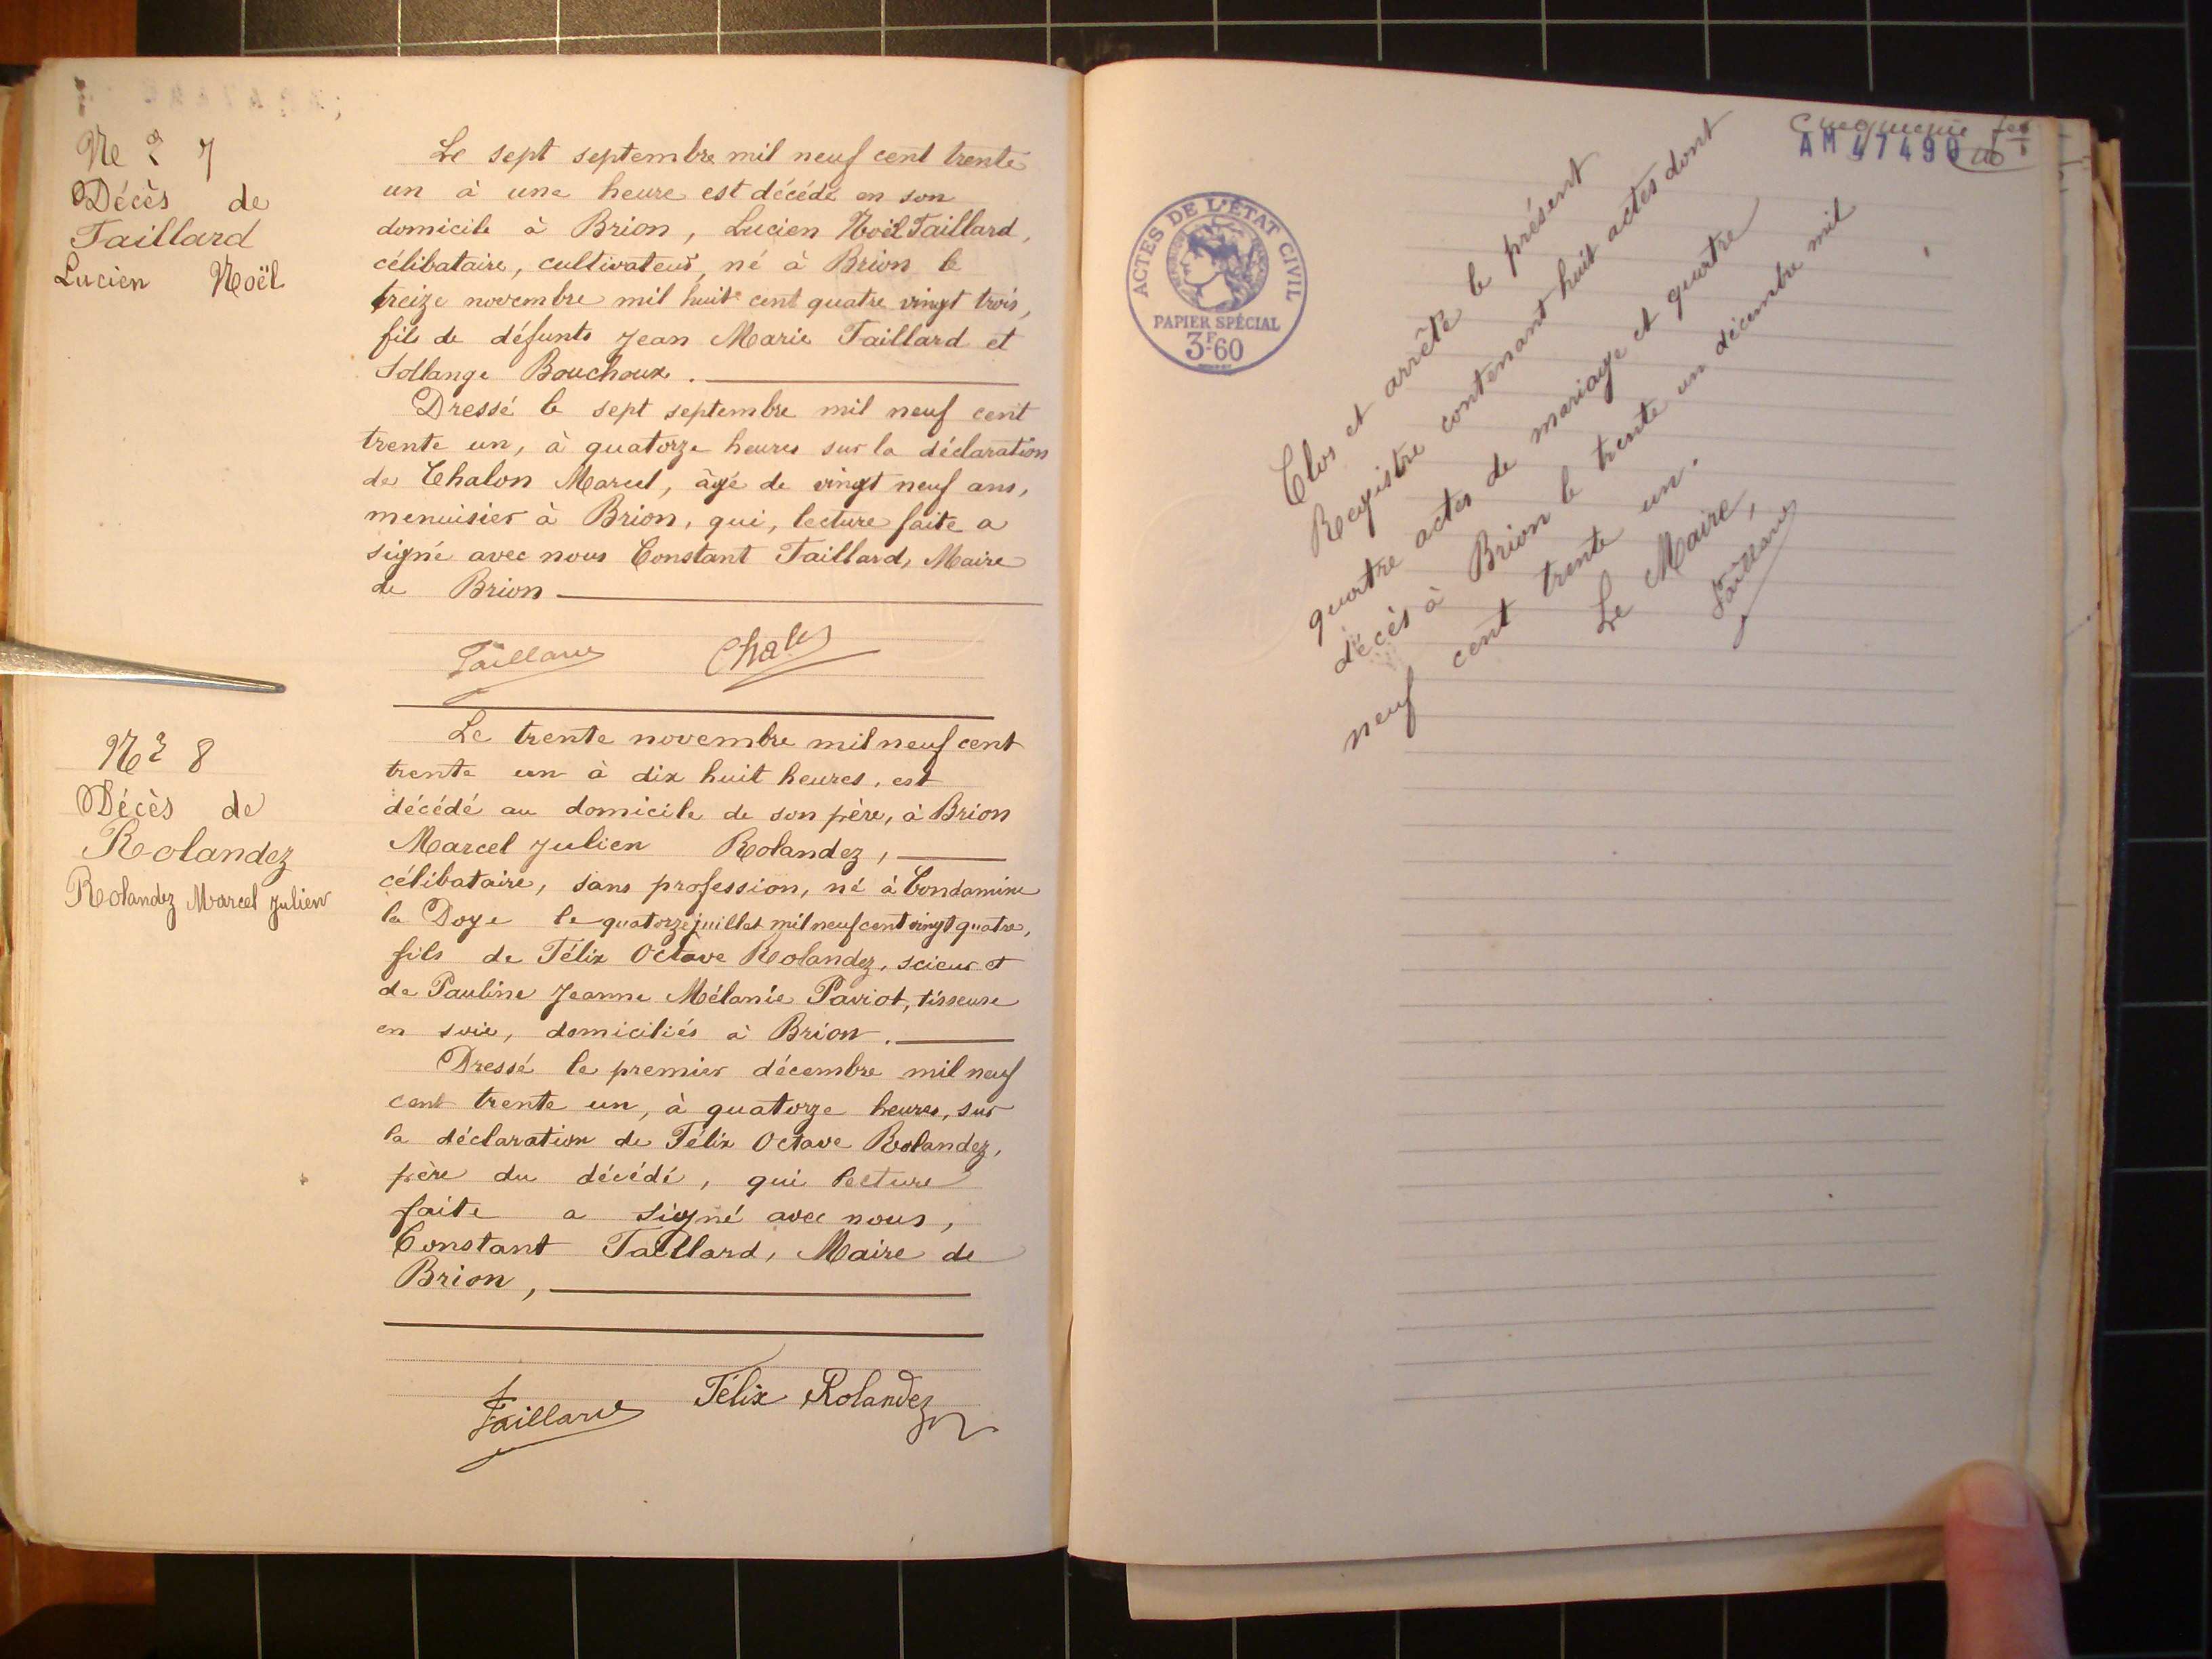 Nº 7
Décès de
Taillard
Lucien Noël
Le sept septembre mil neuf cent trente
un à une heure est décédé en son
domicile à Brion, Lucien Noël Taillard,
célibataire, cultivateur, né à Brion le
treize novembre mil huit cent quatre vingt trois,
fils de défunts Jean Marie Taillard et
Sollange Bouchoux.
Dressé le sept septembre mil neuf cent
trente un, à quatorze heures sur la déclaration
de Chalon Marcel, âgé de vingt neuf ans,
menuisier à Brion, qui, lecture faite a
signé avec nous Constant Taillard, Maire
de Brion
Taillard Chalon
Nº 8
Décès de
Rolandez
Rolandez Marcel Julien
Le trente novembre mil neuf cent
trente un à dix huit heures, est
décédé au domicile de son père, à Brion
Marcel Julien Rolandez,
célibataire, sans profession, né à Condamine
la Doye le quatorze juillet mil neuf cent vingt quatre,
fils de Félix Octave Rolandez, scieur et
de Pauline Jeanne Mélanie Paviot, tisseuse
en soie, domiciliés à Brion.
Dressé le premier décembre mil neuf
cent trente un, à quatorze heures, sur
la déclaration de Félix Octave Rolandez,
père du décédé, qui lecture
faite a signé avec nous,
Constant Taillard, Maire de
Brion,
Taillard Félix Rolandez
AM 47490
ACTES DE L'ÉTAT CIVIL
RÉPUBLIQUE FRANÇAISE
PAPIER SPÉCIAL
3F60
Clos et arrêté le présent
Registre contenant huit actes dont
quatre actes de mariage et quatre
décès à Brion le trente un décembre mil
neuf cent trente un.
Le Maire,
Taillard